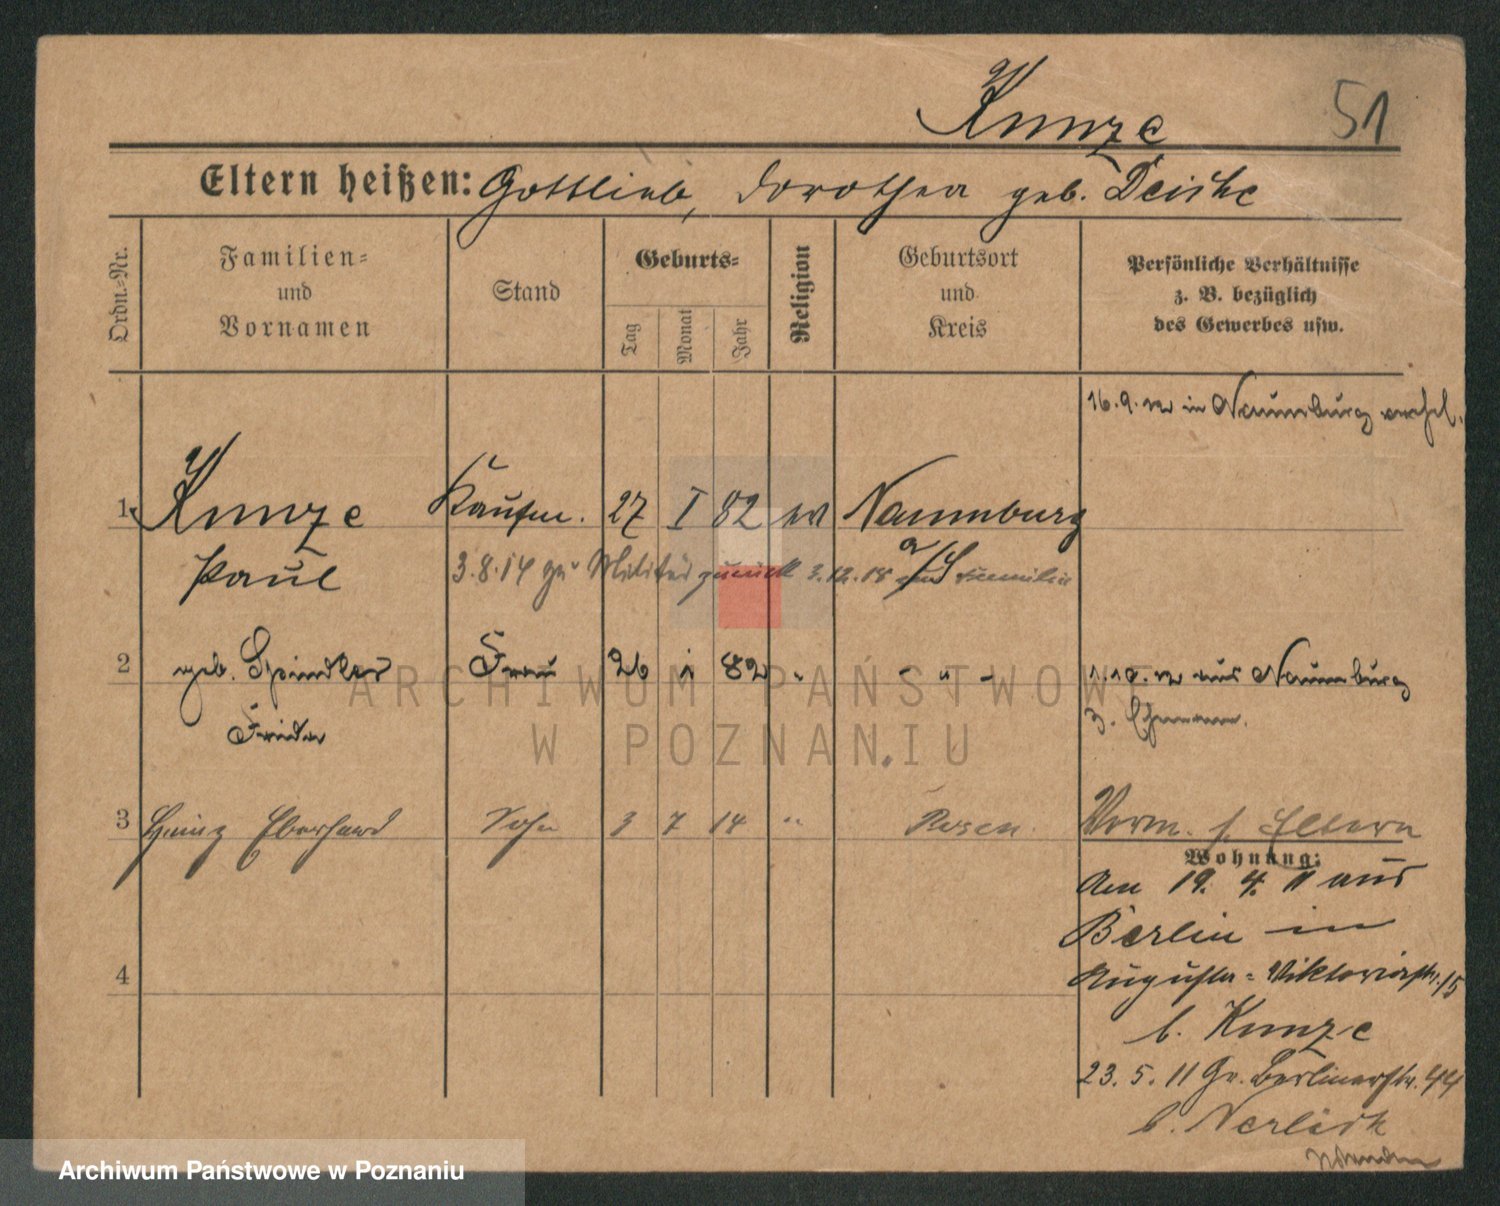 Kunze
51
Eltern heißen: Gottlieb, Dorothea geb. Deicke
Ordn.-Nr.
Familien-
und
Vornamen
Stand
Geburts-
Tag
Monat
Jahr
Religion
Geburtsort
und
Kreis
Persönliche Verhältnisse
z. B. bezüglich
des Gewerbes usw.
16.9.12 in Naumburg verhel.
1 Kunze Kaufm. 27 I 82 ev Naumburg
Paul
a/S
3.8.14 zu Militär zurück 3.12.18 Familie
2 geb. Spindler Frau 26 1 82 " - " -
1.10.12 aus Naumburg
Frieda
z. Ehemann.
3 Heinz Eberhard Sohn 3 7 14 " Posen.
Verm. s. Eltern
Wohnung:
Am 19. 4. 11 aus
Berlin in
Augusta-Viktoriastr. 15
4
b. Kunze
23. 5. 11 Gr. Berlinerstr. 44
b. Nerlich
ARCHIWUM PAŃSTWOWE
W POZNANIU
Archiwum Państwowe w Poznaniu